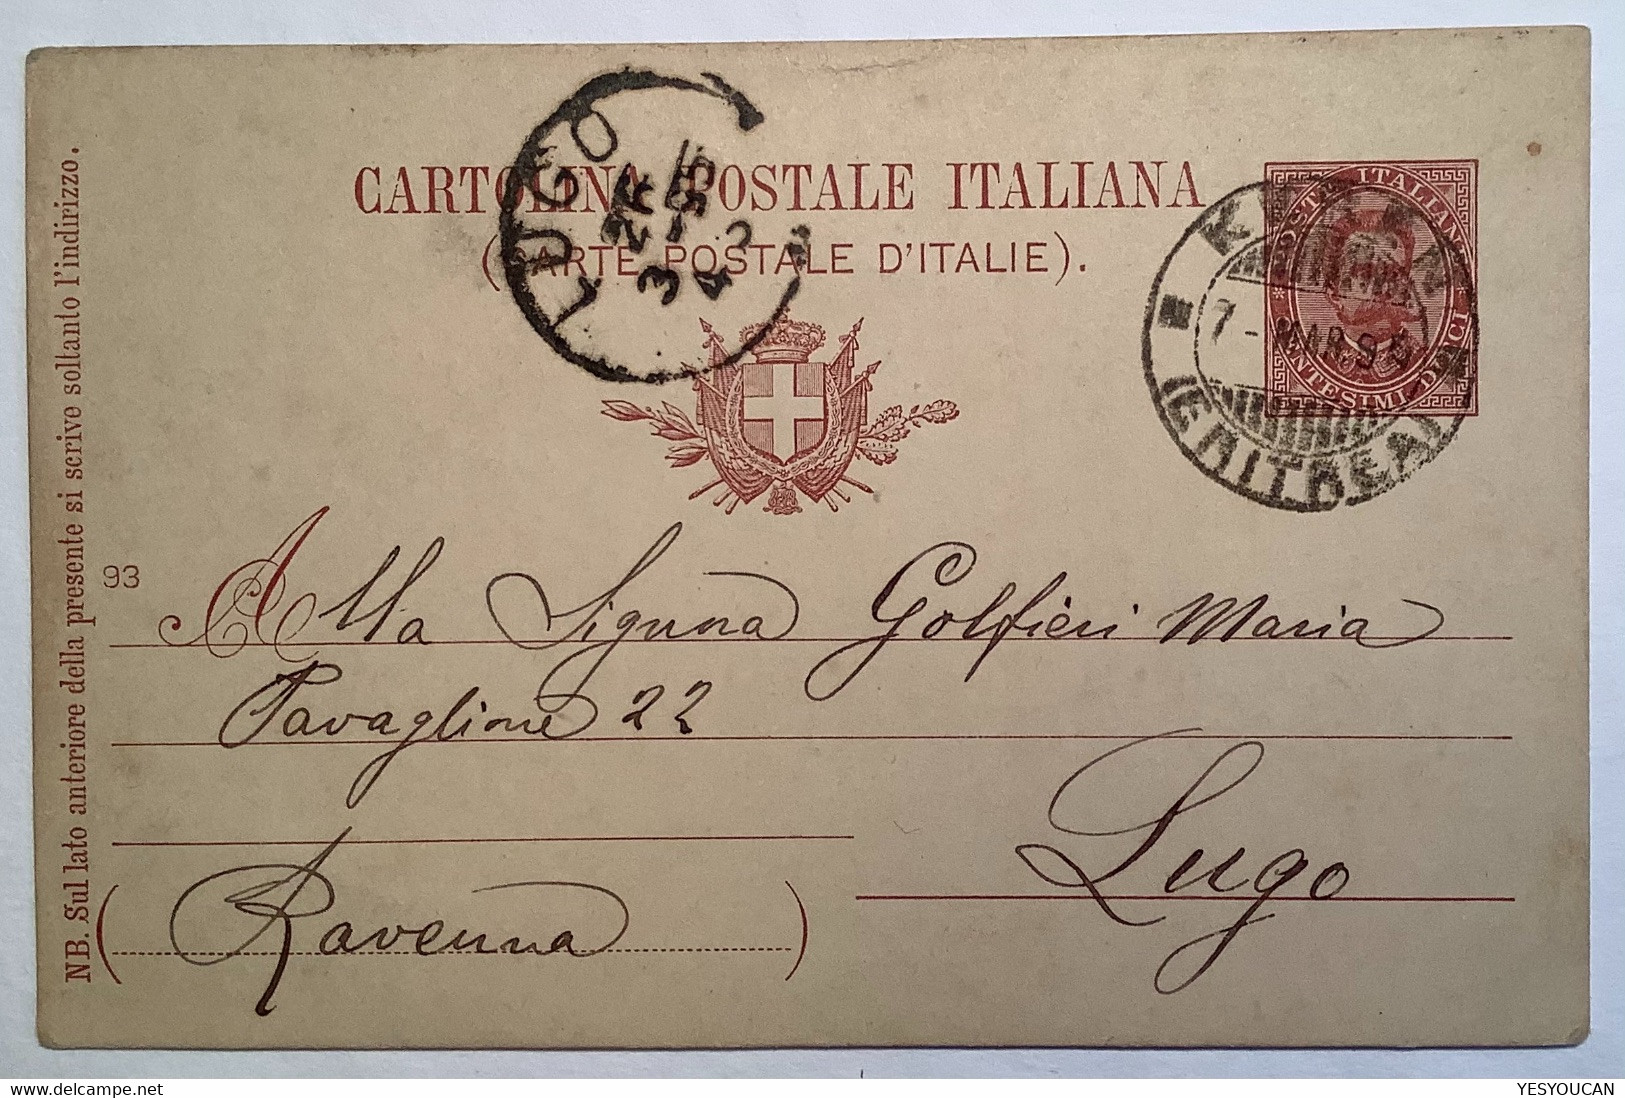 CARTOLINA POSTALE ITALIANA
(CARTE POSTALE D'ITALIE).
POSTE ITALIANE
CENTESIMI DIECI
LUGO
3 95
4 3
KEREN
7 - MAR 95
(ERITREA)
NB. Sul lato anteriore della presente si scrive soltanto l'indirizzo.
93
Alla Signora Golfieri Maria
Pavaglione 22
Lugo
(Ravenna)
YESYOUCAN
delcampe.net